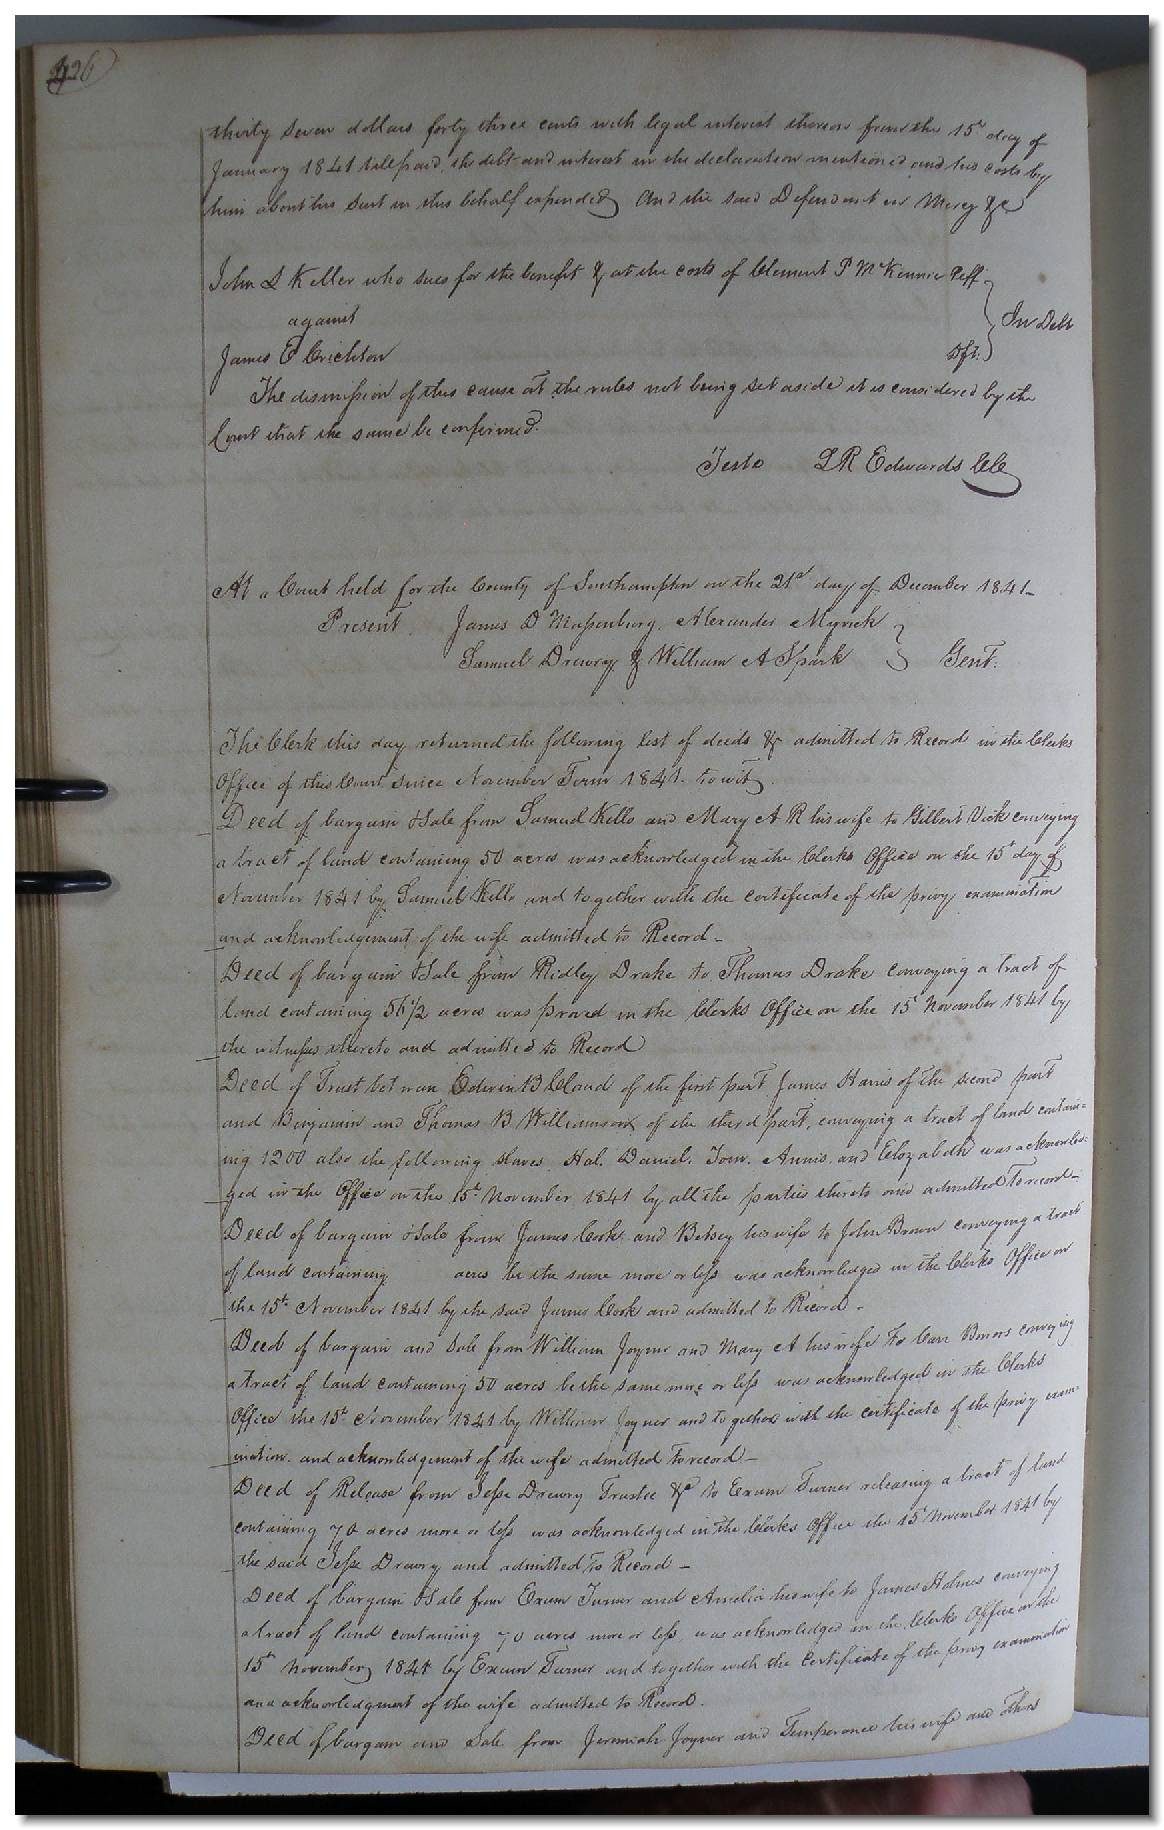 426
thirty seven dollars forty three cents with legal interest thereon from the 15th day of
January 1841 till paid, the debt and interest in the declaration mentioned and his costs by
him about his suit in this behalf expended And the said Defendant in Mercy &c
John S Keller who sues for the benefit & at the costs of Clement P McKennie Plff
against
In Debt
James E Crichton Dft.
The dismission of this cause at the rules not being set aside it is considered by the
Court that the same be confirmed.
Teste L R Edwards ClC
At a Court held for the County of Southampton on the 21st day of December 1841–
Present James D Massenburg, Alexander Myrick
Samuel Drewry & William A Spark Gent.
The Clerk this day returned the following list of deeds &c admitted to Record in the Clerks
Office of this Court since November Term 1841. towit,
Deed of bargain & Sale from Samuel Kello and Mary A R his wife to Gilbert Vick conveying
a tract of land containing 50 acres was acknowledged in the Clerks Office on the 15th day of
November 1841 by Samuel Kello and together with the certificate of the privy examination
and acknowledgement of the wife admitted to Record–
Deed of bargain & Sale from Ridley Drake to Thomas Drake conveying a tract of
land containing 56 1/2 acres was proved in the Clerks Office on the 15th November 1841 by
the witness thereto and admitted to Record
Deed of Trust between Edwin B Claud of the first part James Harris of the second part
and Benjamin and Thomas B Williamson of the third part, conveying a tract of land contain=
ing 1200 also the following slaves, Hal. Daniel. Tom. Annis. and Elizabeth was acknowled=
ged in the Office on the 15th November 1841 by all the parties thereto and admitted To record–
Deed of bargain & Sale from James Cook and Betsey his wife to John Brown conveying a tract
of land containing acres be the same more or less was acknowledged in the Clerks Office on
the 15th November 1841 by the said James Cook and admitted to Record–
Deed of bargain and Sale from William Joyner and Mary A his wife To Carr Bowers conveying
a tract of land containing 50 acres be the same more or less was acknowledged in the Clerks
Office the 15th November 1841 by William Joyner and together with the certificate of the privy exam=
ination. and acknowledgement of the wife admitted To record–
Deed of Release from Jesse Drewry Trustee &c to Exum Turner releasing a tract of land
containing 70 acres more or less was acknowledged in the Clerks Office the 15th November 1841 by
the said Jesse Drewry and admitted To Record–
Deed of bargain & Sale from Exum Turner and Amelia his wife to James Holmes conveying
a tract of land containing 70 acres more or less was acknowledged in the Clerks Office on the
15th November 1841 by Exum Turner and together with the certificate of the privy examination
and acknowledgment of the wife admitted to Record.
Deed of bargain and Sale from Jeremiah Joyner and Temperance his wife and Thos